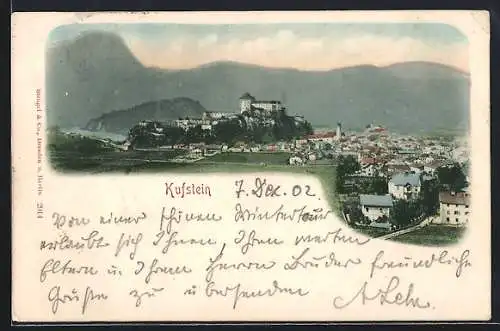 Stengel & Co., Dresden u. Berlin 2914
Kufstein 7. Dez. 02
Von einer schönen Wintertour
erlaubt sich Ihnen, Ihren werten
Eltern und Ihrem Herrn Bruder freundliche
Grüße zu übersenden